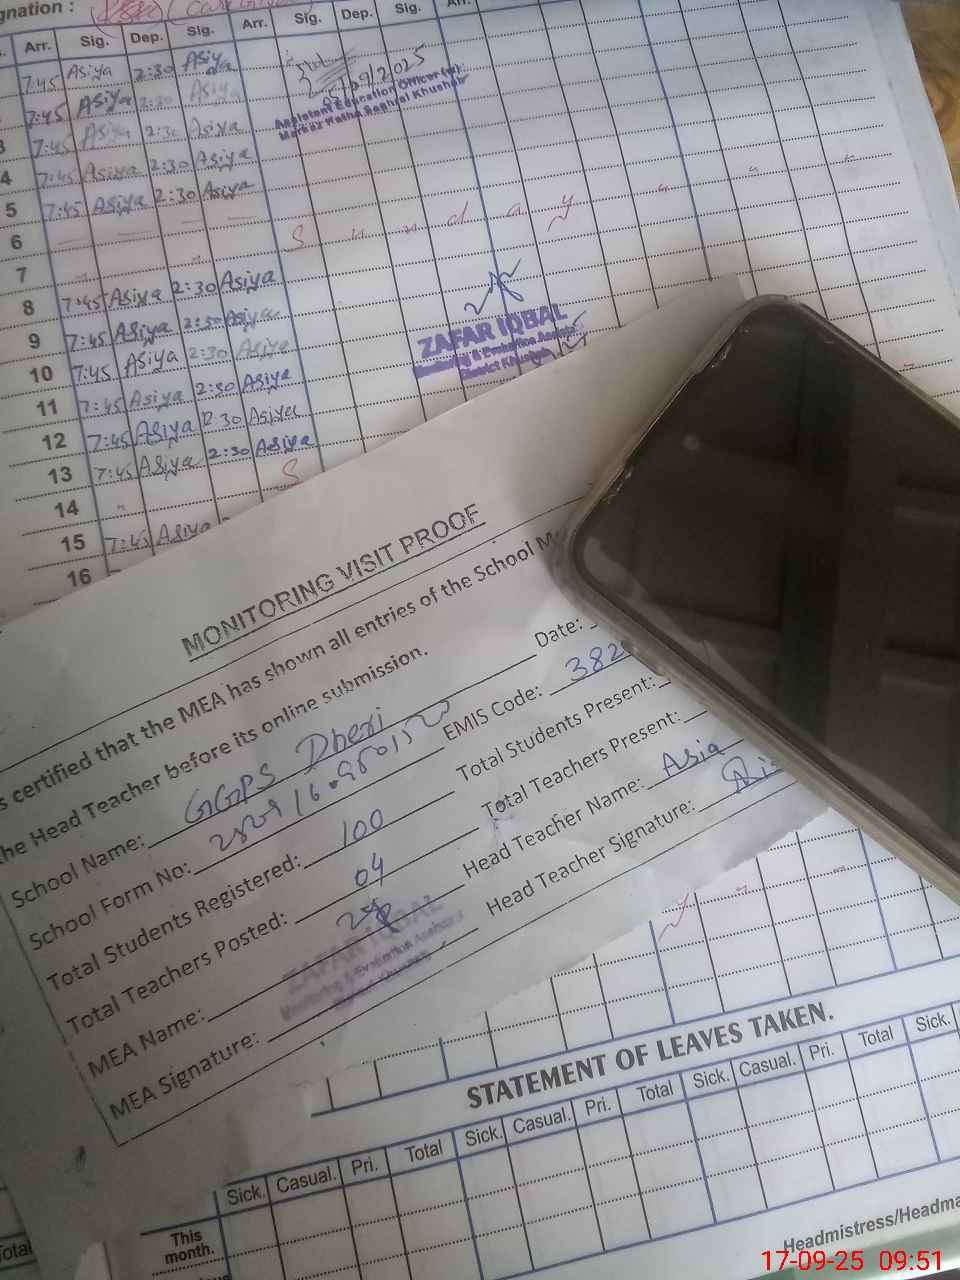 gnation :
Arr. Sig. Dep. Sig. Arr. Sig. Dep. Sig. Arr.
7:45 Asiya 2:30 Asiya
7:45 Asiya 2:30 Asiya
3 7:45 Asiya 2:30 Asiya
4 7:45 Asiya 2:30 Asiya
5 7:45 Asiya 2:30 Asiya
Assistant Education Officer
6
S u n d a y
7
8 7:45 Asiya 2:30 Asiya
9 7:45 Asiya 2:30 Asiya
10 7:45 Asiya 2:30 Asiya
11 7:45 Asiya 2:30 Asiya
12 7:45 Asiya 2:30 Asiya
13 7:45 Asiya 2:30 Asiya
14 S
15 7:45 Asiya
16
ZAFAR IQBAL
Monitoring & Evaluation Assistant
District Khushab
MONITORING VISIT PROOF
s certified that the MEA has shown all entries of the School M
he Head Teacher before its online submission.
Date:
School Name: GGPS Dheri
EMIS Code: 382
School Form No:
Total Students Present:
Total Students Registered: 100
Total Teachers Present:
Total Teachers Posted: 04
Head Teacher Name: Asia
MEA Name:
Head Teacher Signature:
MEA Signature:
ZAFAR IQBAL
Monitoring & Evaluation Assistant
y
STATEMENT OF LEAVES TAKEN.
Sick. Casual. Pri. Total Sick. Casual. Pri. Total Sick. Casual. Pri. Total Sick.
This month.
Total
Headmistress/Headma
17-09-25 09:51